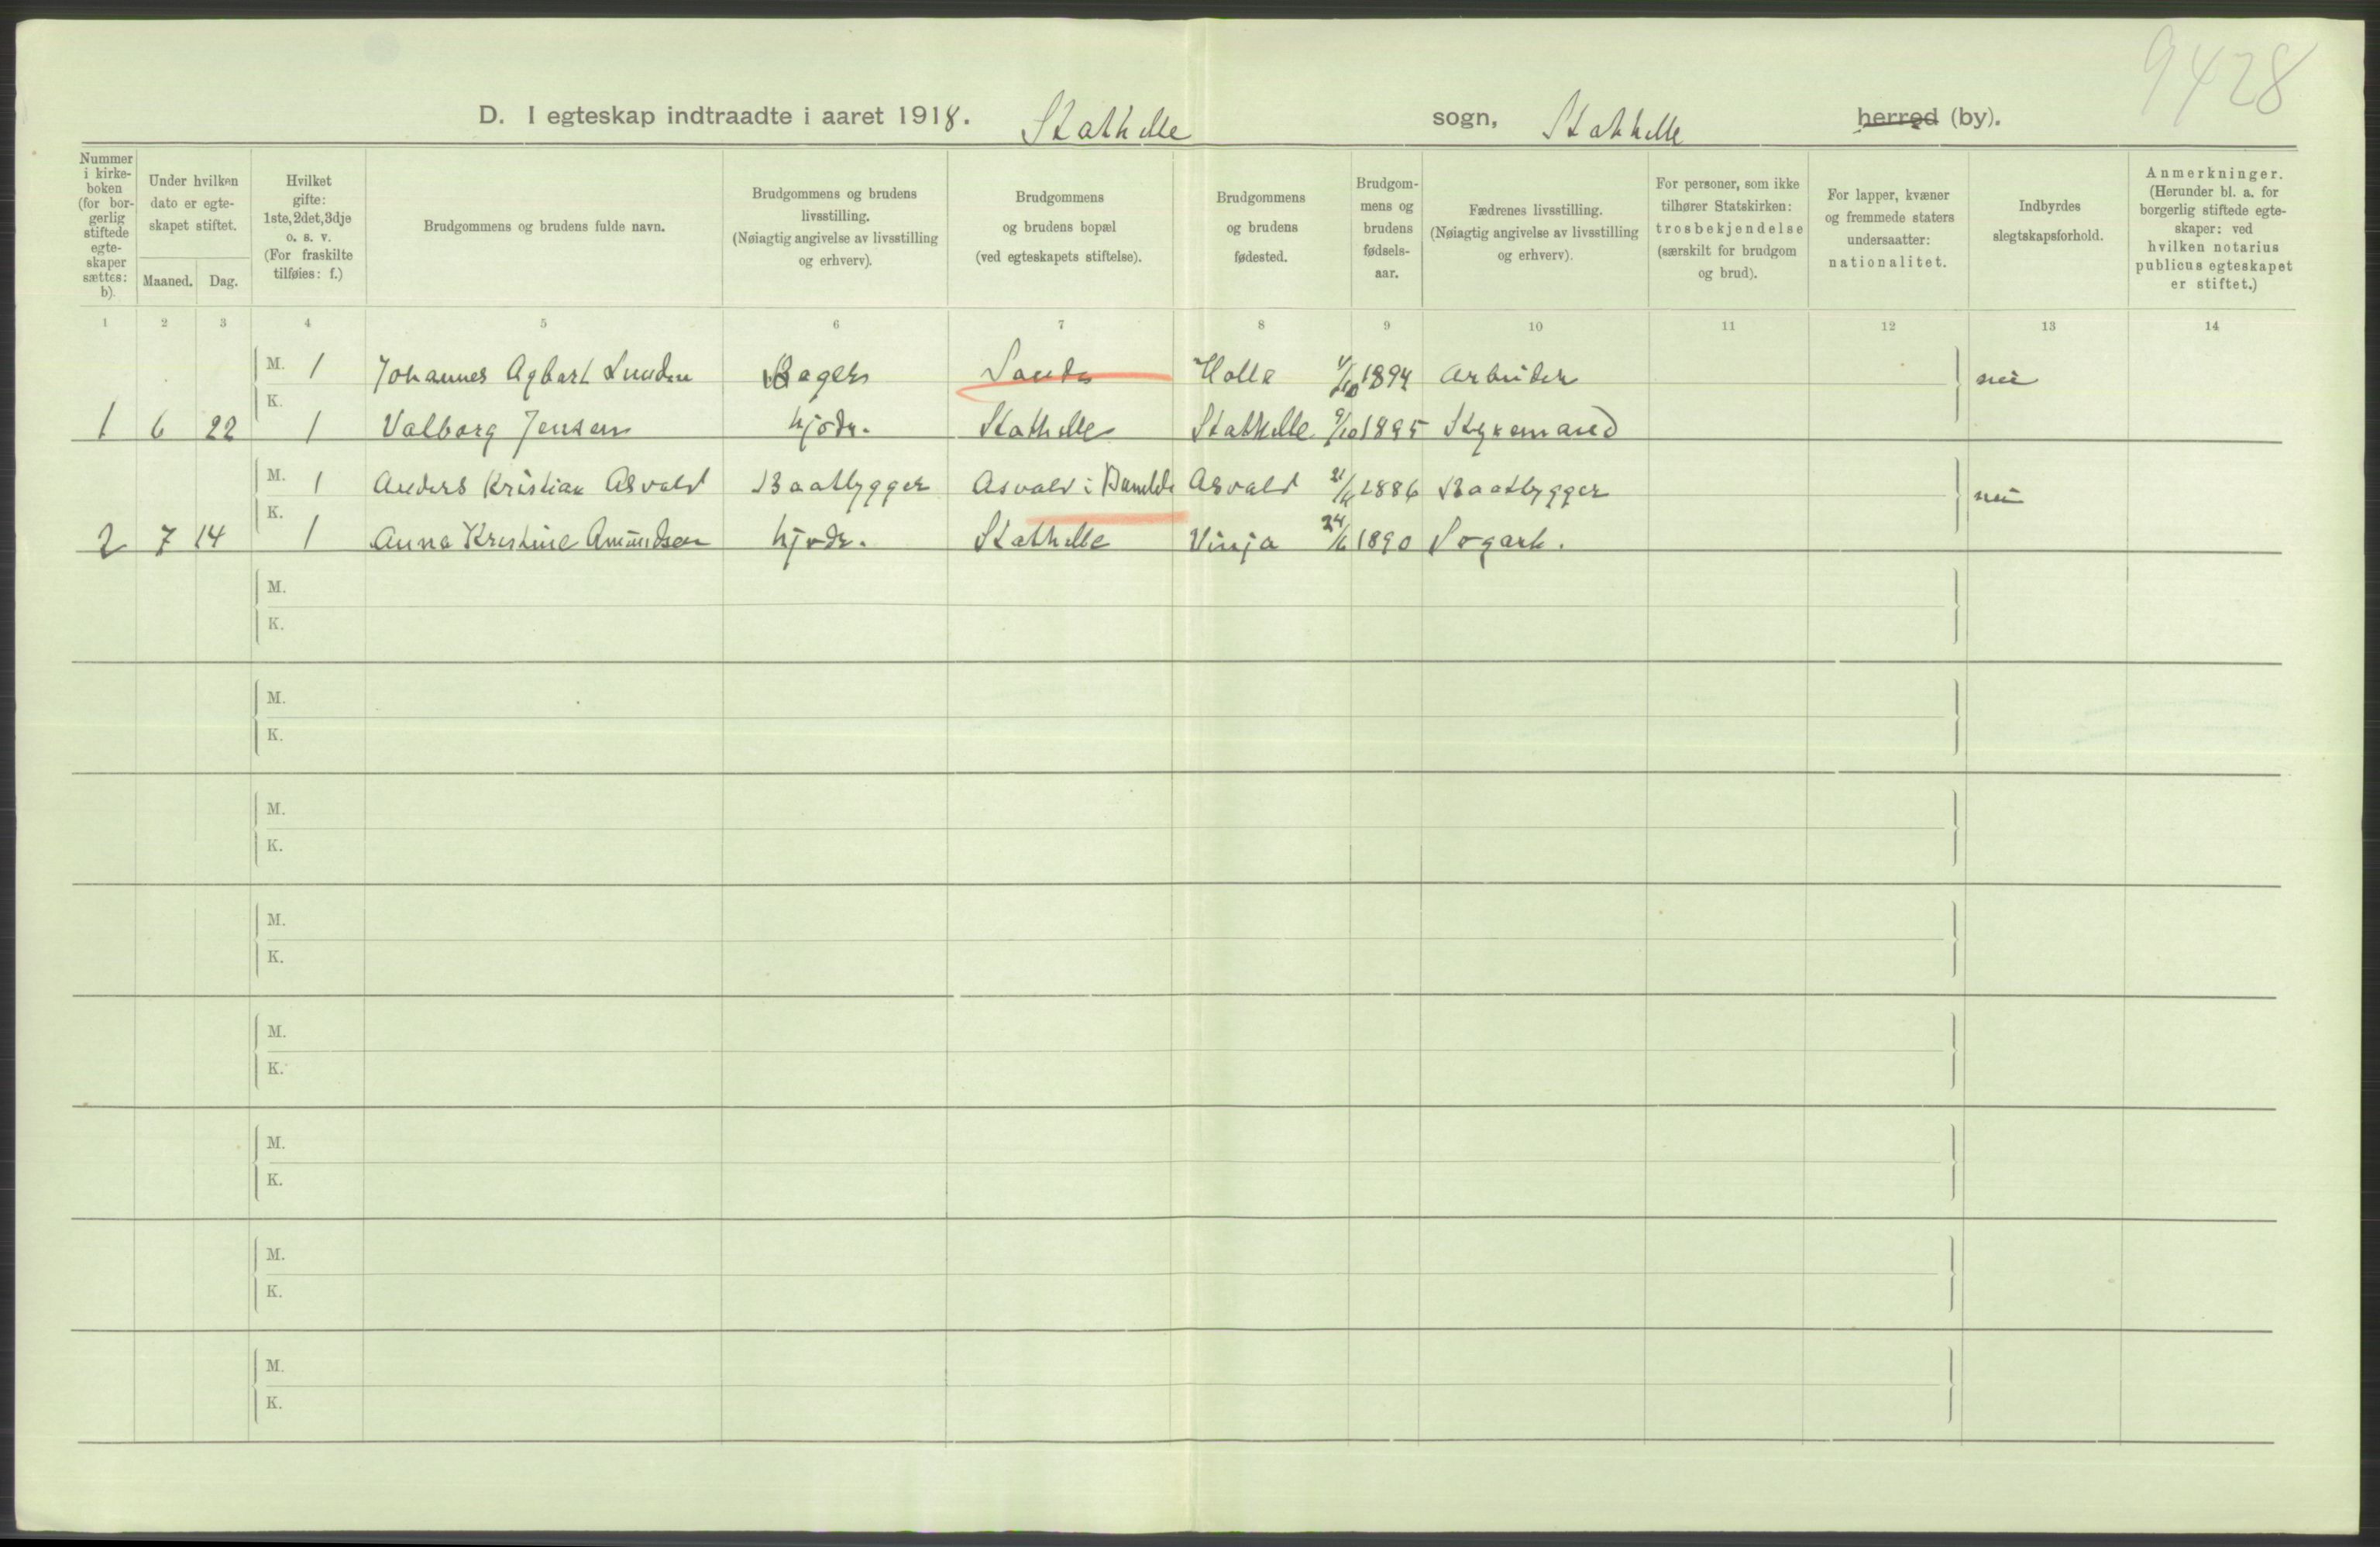 9428
D. I egteskap indtraadte i aaret 1918. Stathelle sogn, Stathelle herred (by).
Nummer i kirkeboken (for borgerlig stiftede egteskaper sættes: b).
Under hvilken dato er egteskapet stiftet.
Maaned. Dag.
Hvilket gifte: 1ste, 2det, 3dje o. s. v. (For fraskilte tilføies: f.)
Brudgommens og brudens fulde navn.
Brudgommens og brudens livsstilling. (Nøiagtig angivelse av livsstilling og erhverv).
Brudgommens og brudens bopæl (ved egteskapets stiftelse).
Brudgommens og brudens fødested.
Brudgommens og brudens fødselsaar.
Fædrenes livsstilling. (Nøiagtig angivelse av livsstilling og erhverv).
For personer, som ikke tilhører Statskirken: trosbekjendelse (særskilt for brudgom og brud).
For lapper, kvæner og fremmede staters undersaatter: nationalitet.
Indbyrdes slegtskapsforhold.
Anmerkninger. (Herunder bl. a. for borgerlig stiftede egteskaper: ved hvilken notarius publicus egteskapet er stiftet.)
1 2 3 4 5 6 7 8 9 10 11 12 13 14
M. 1 Johannes Agbert Lunden Bager Sande Holla 1/10 1894 Arbeider nei
K.
1 6 22 1 Valborg Jensen hjødr. Stathelle Stathelle 9/10 1895 Styrmand
M. 1 Anders Kristian Asvald Baatbygger Asvald i Bamble Asvald 1886 Baatbygger nei
K.
2 7 14 1 Anna Kristine Amundsen hjødr. Stathelle Vinja 24/6 1890 Sogark.
M.
K.
M.
K.
M.
K.
M.
K.
M.
K.
M.
K.
M.
K.
M.
K.